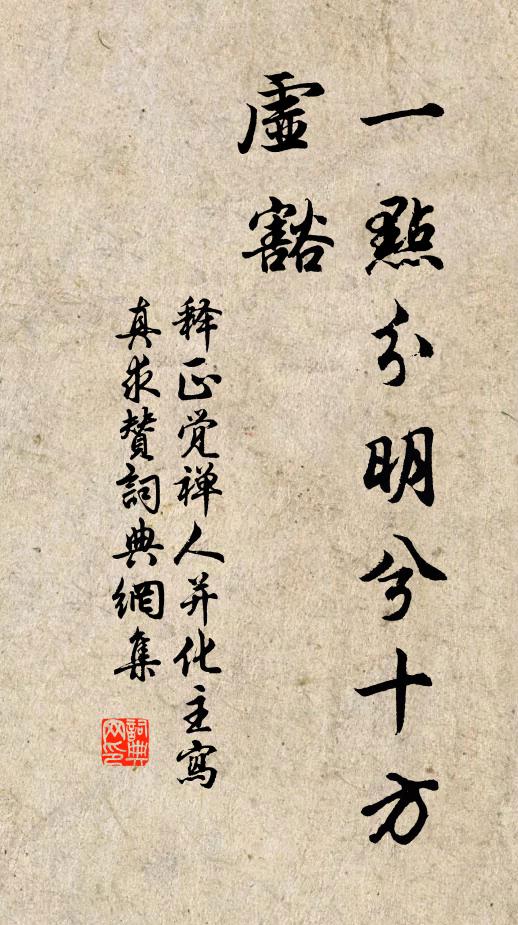 一點分明兮十方
虛豁
释正觉禅人并化主寫
真求贊詞典網集
詞典網印